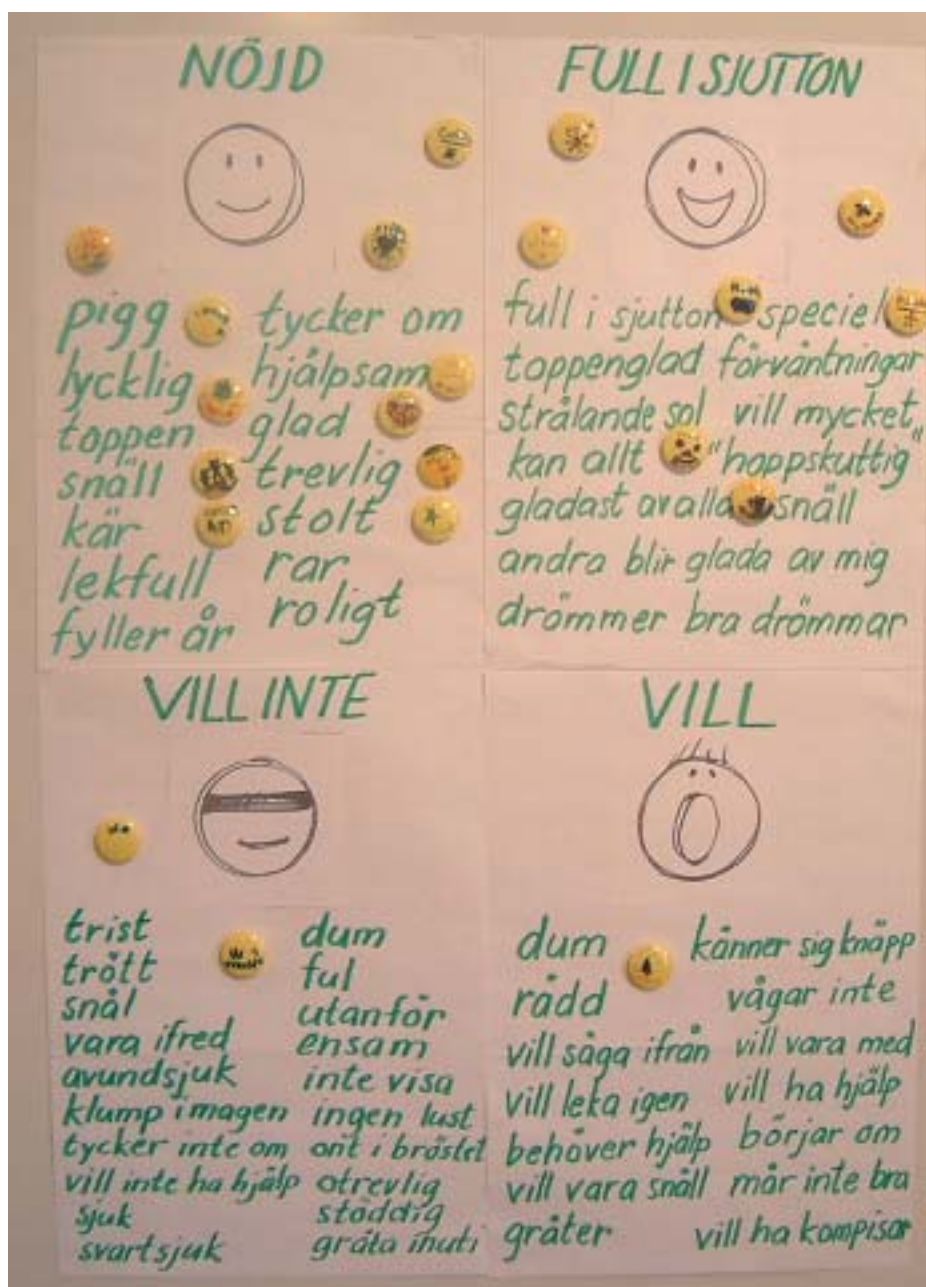 NÖJD
pigg
lycklig
toppen
snäll
kär
lekfull
fyller år
tycker om
hjälpsam
glad
trevlig
stolt
rar
roligt
FULL I SJUTTON
full i sjutton speciell
toppenglad förväntningar
strålande sol vill mycket
kan allt "hoppskuttig"
gladast av alla snäll
andra blir glada av mig
drömmer bra drömmar
VILL INTE
trist
trött
snål
vara ifred
avundsjuk
klump i magen
tycker inte om
vill inte ha hjälp
sjuk
svartsjuk
dum
ful
utanför
ensam
inte visa
ingen lust
ont i bröstet
otrevlig
stöddig
gråta inuti
VILL
dum
rädd
vill säga ifrån
vill leka igen
behöver hjälp
vill vara snäll
gråter
känner sig knäpp
vågar inte
vill vara med
vill ha hjälp
börjar om
mår inte bra
vill ha kompisar